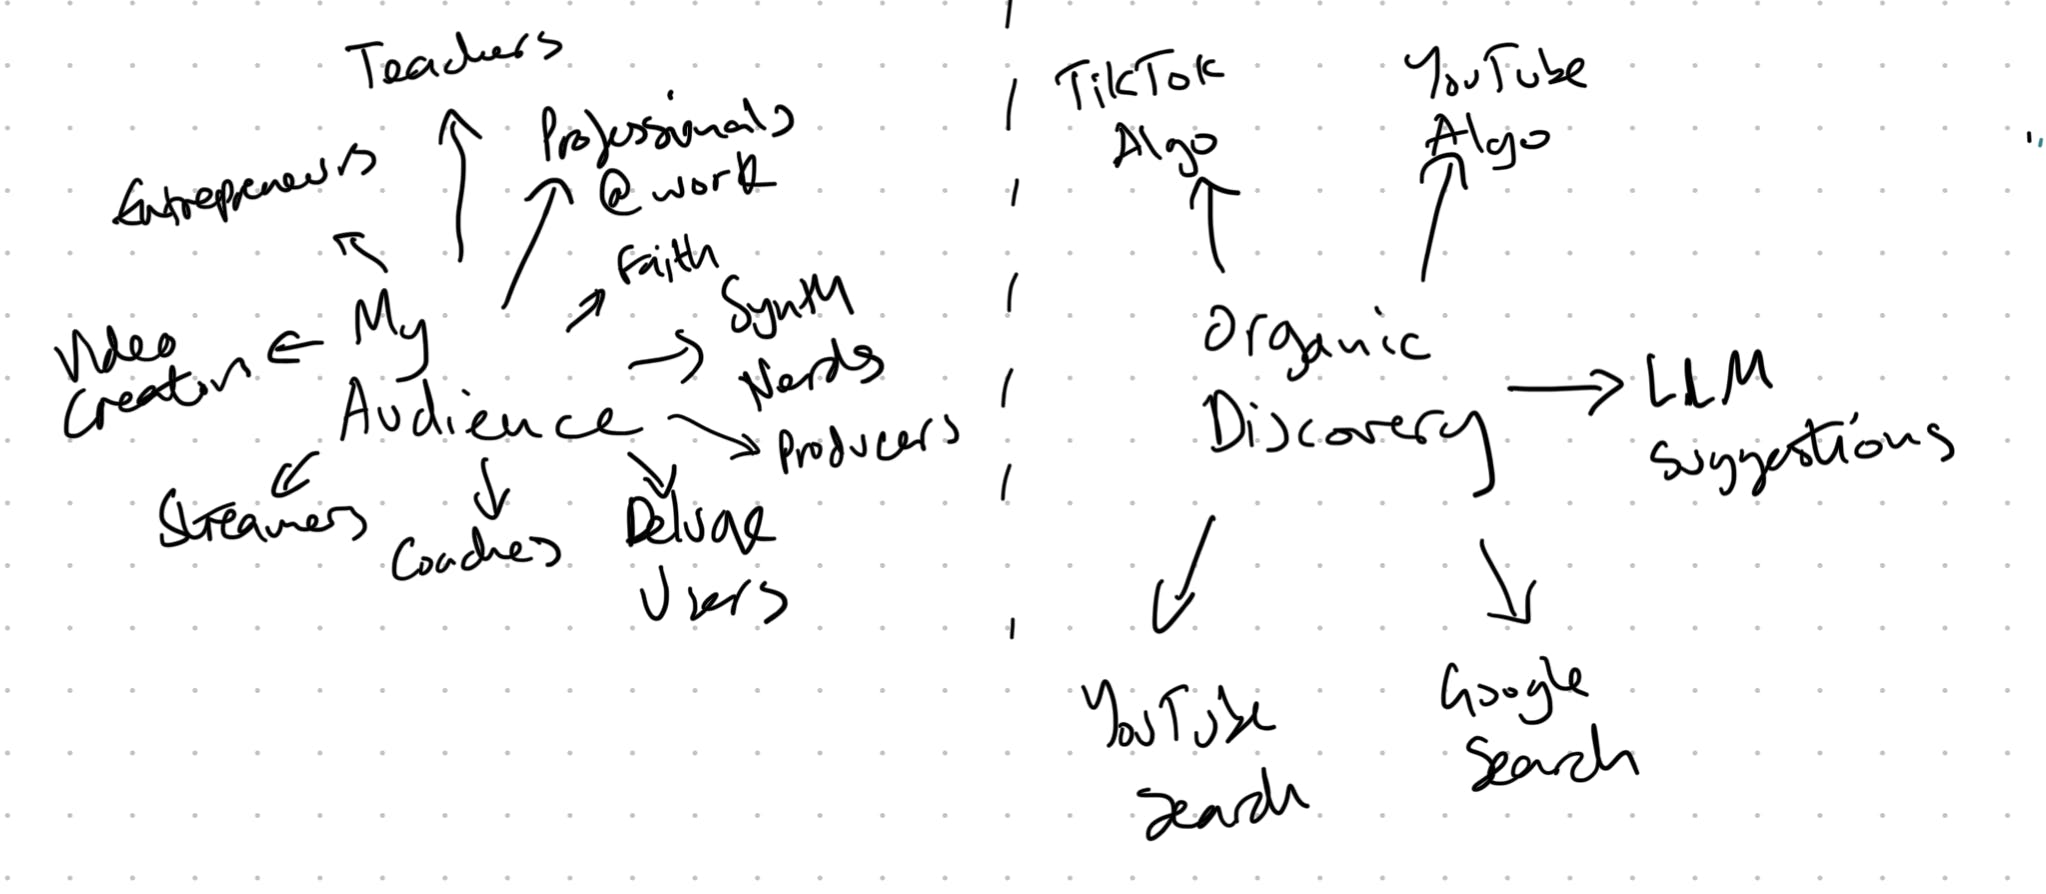 Teachers
Professionals
@ work
Entrepreneurs
Faith
Synth
Nerds
My
Audience
Video
Creators
Producers
Streamers
Coaches
Deluge
Users
TikTok
Algo
YouTube
Algo
Organic
Discovery
LLM
Suggestions
YouTube
Search
Google
Search